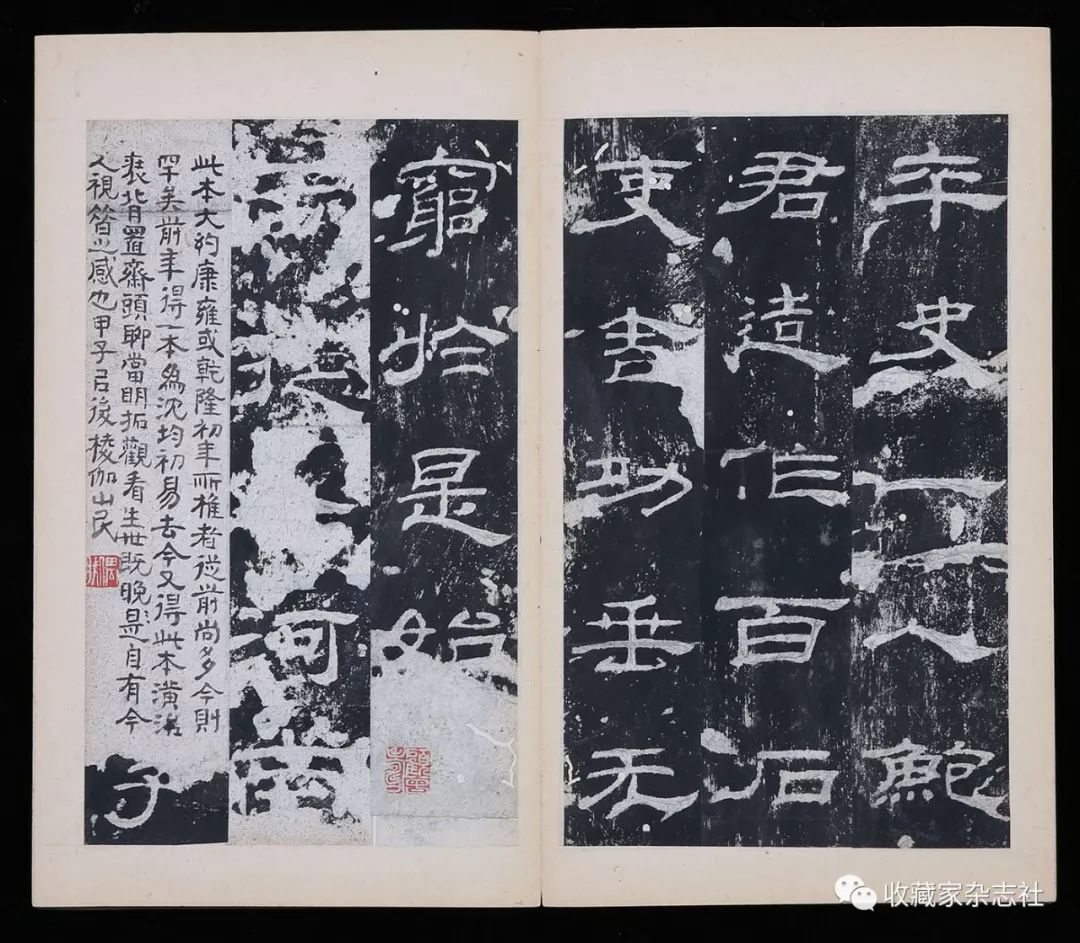 卒史一人鮑
君造作百石
吏舍功垂无
窮於是始
河南
此本大約康雍或乾隆初年所椎者從前尚多今則
罕矣前年得一本為沈均初易去今又得此本潢治
裝背置齋頭聊當明拓觀看生世既晚是自有今
人視昔之感也甲子㠯後棱伽山民
子
收藏家杂志社